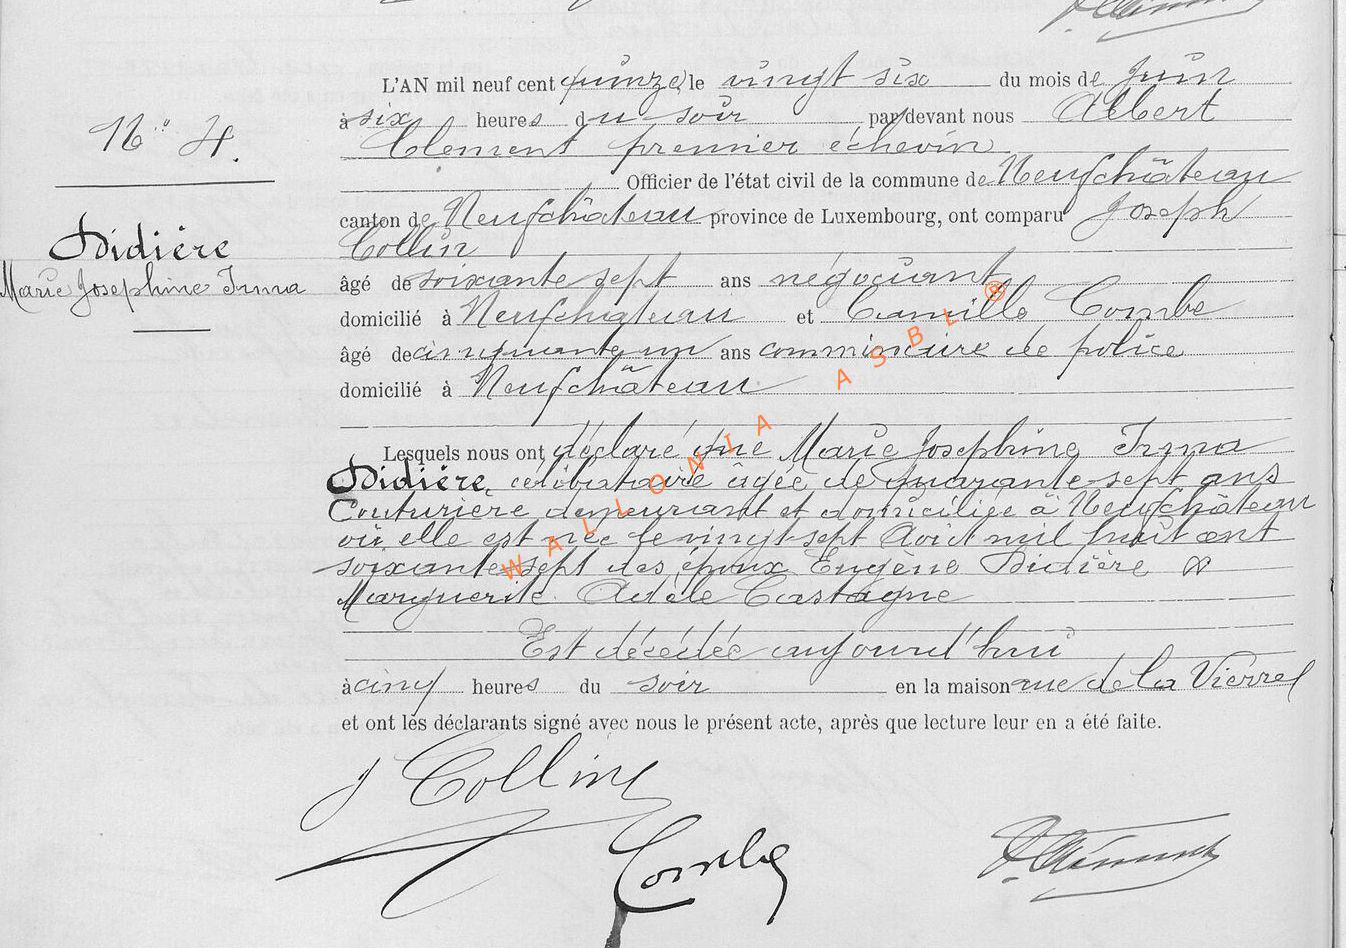 L'AN mil neuf cent quinze, le vingt six du mois de Juin
à six heures du soir par devant nous Albert
Clement premier échevin
Officier de l'état civil de la commune de Neufchâteau
canton de Neufchâteau province de Luxembourg, ont comparu Joseph
Collin
âgé de soixante sept ans négociant
domicilié à Neufchateau et Camille Combe
âgé de cinquante un ans commissaire de police
domicilié à Neufchâteau
Lesquels nous ont déclaré que Marie Josephine Irma
Didière, célibataire âgée de quarante-sept ans
Couturière demeurant et domiciliée à Neufchâteau
où elle est née le vingt-sept Août mil huit cent
soixante-sept des époux Eugène Didière &
Marguerite Adèle Castagne
Est décédée aujourd'hui
à cinq heures du soir en la maison rue de la Vierre
et ont les déclarants signé avec nous le présent acte, après que lecture leur en a été faite.
J Collin
Combe
N° 4.
Didière
Marie Josephine Irma
WALLONIA ASBL ®